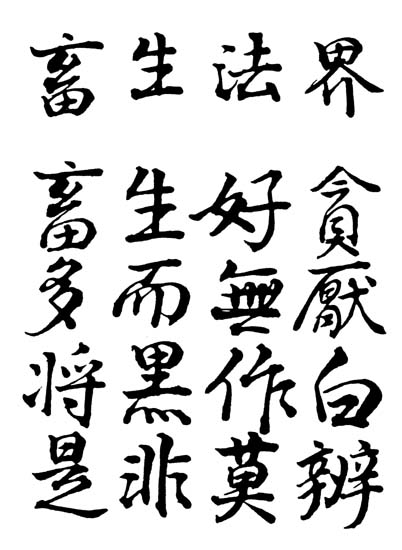 畜生法界
畜生好貪
多而無厭
將黑作白
是非莫辨